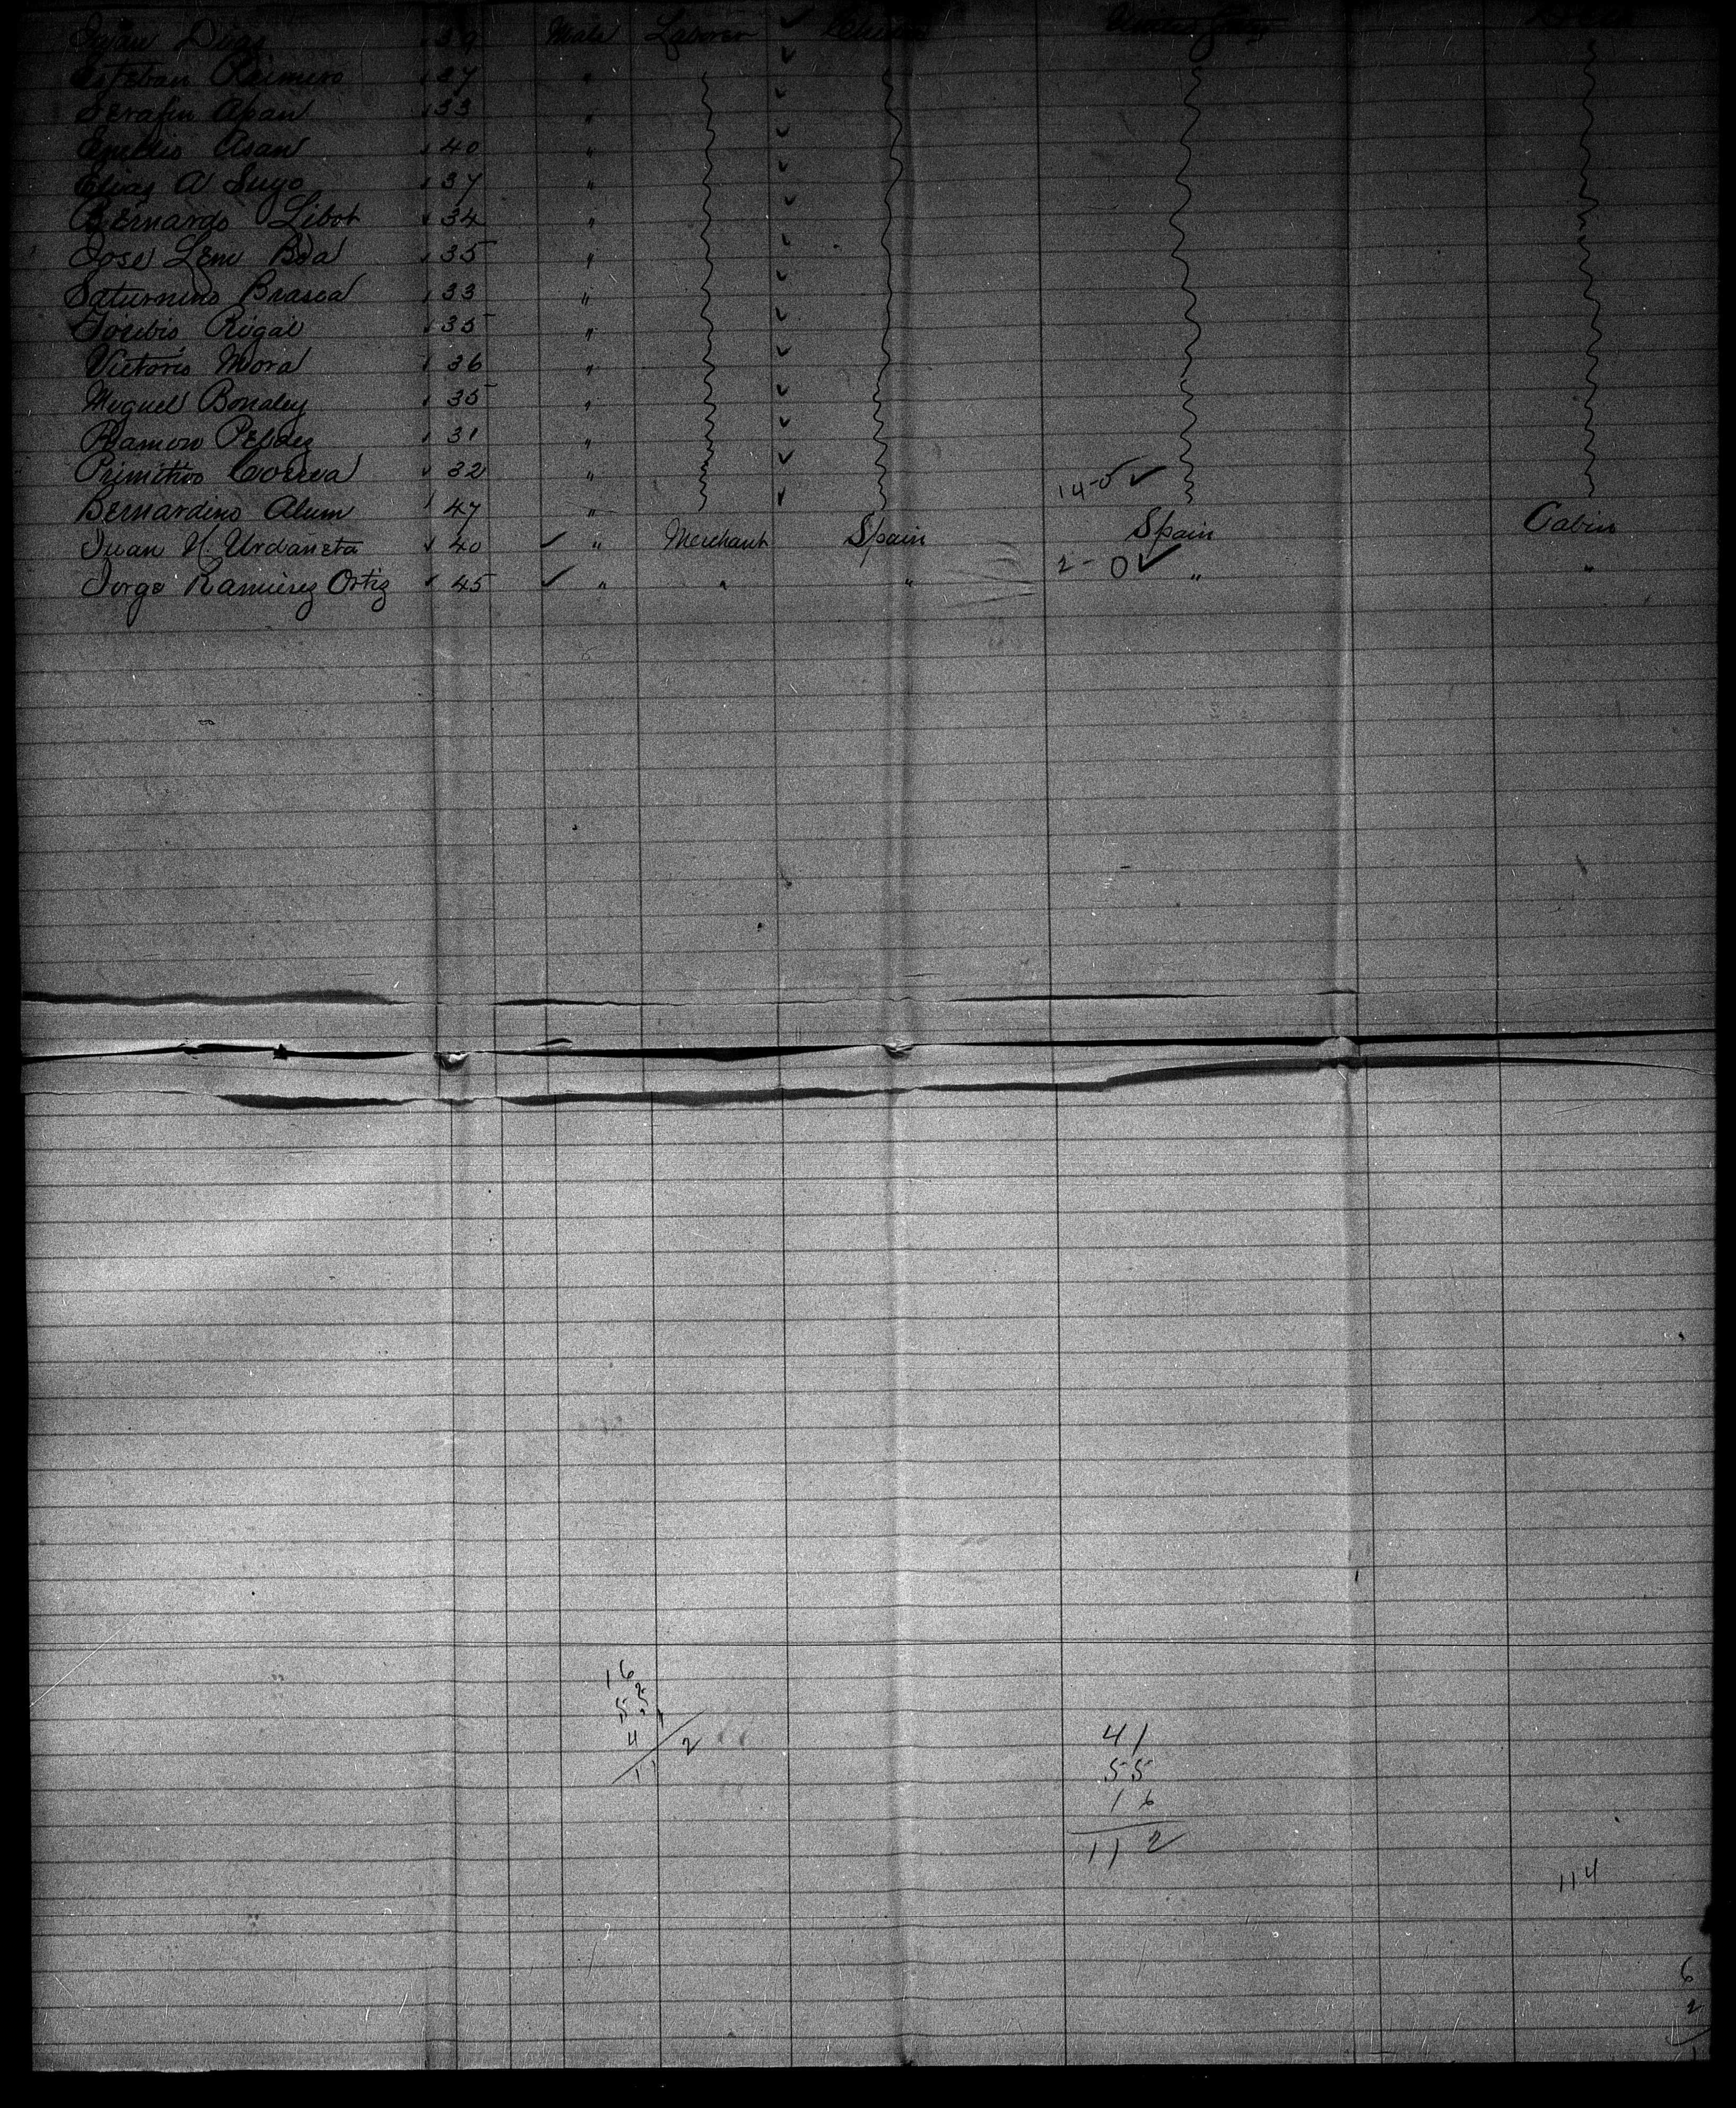 Juan Dias 39 Male Laborer ✓ China United States
Esteban Romero 37 "
Serafin Apan 33 "
Emilio Asan 40 "
Elias A Suyo 37 "
Bernardo Libot 34 "
José Lem Boa 35 "
Saturnino Brasca 33 "
Toribio Rigal 35 "
Victorio Mora 36 "
Miguel 35 "
Ramon Pelaez 31 "
Primitivo Correa 32 " 14-0 ✓
Bernardino Alum 47 "
Juan N. Urdaneta 40 ✓ " Merchant Spain Spain Cabin
Jorge Ramirez Ortiz 45 ✓ " " " 2-0 ✓ " "
16
55
41
112
41
55
16
112
114
6
2